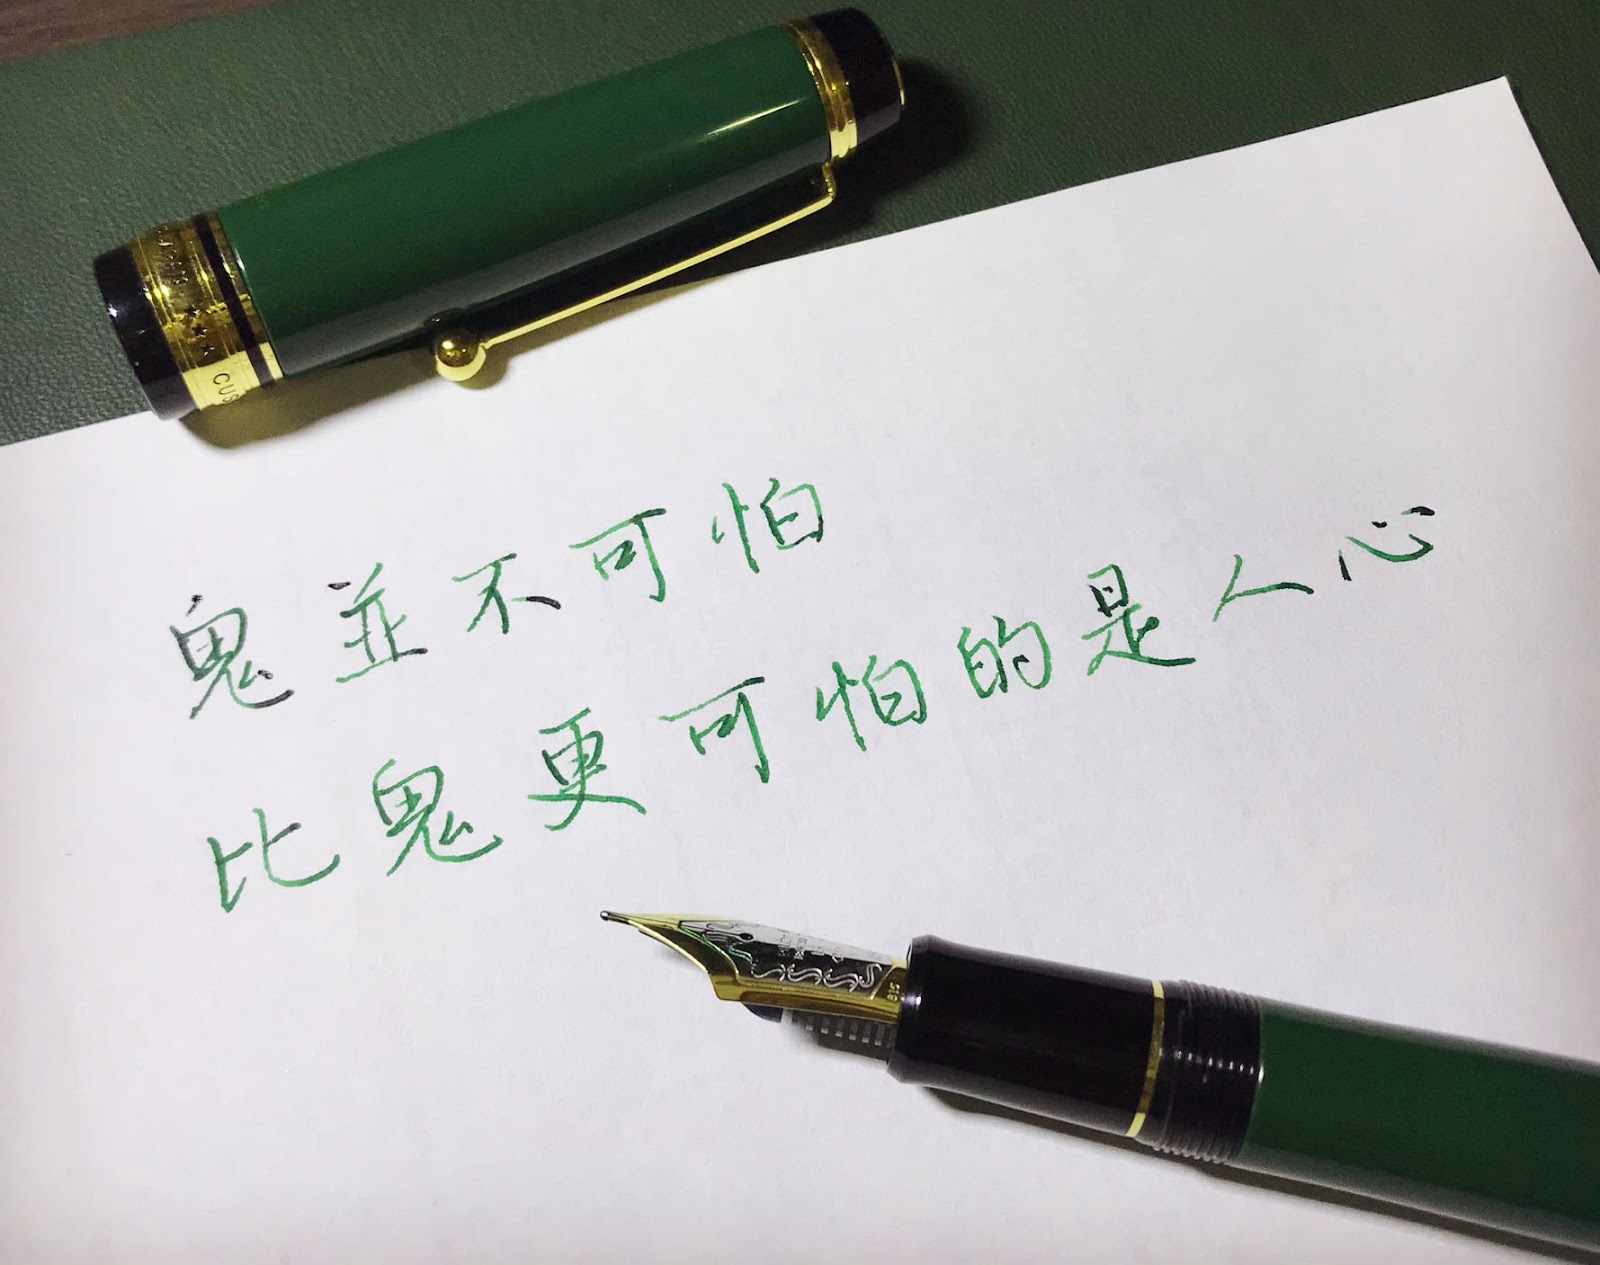 CUS
鬼並不可怕
比鬼更可怕的是人心